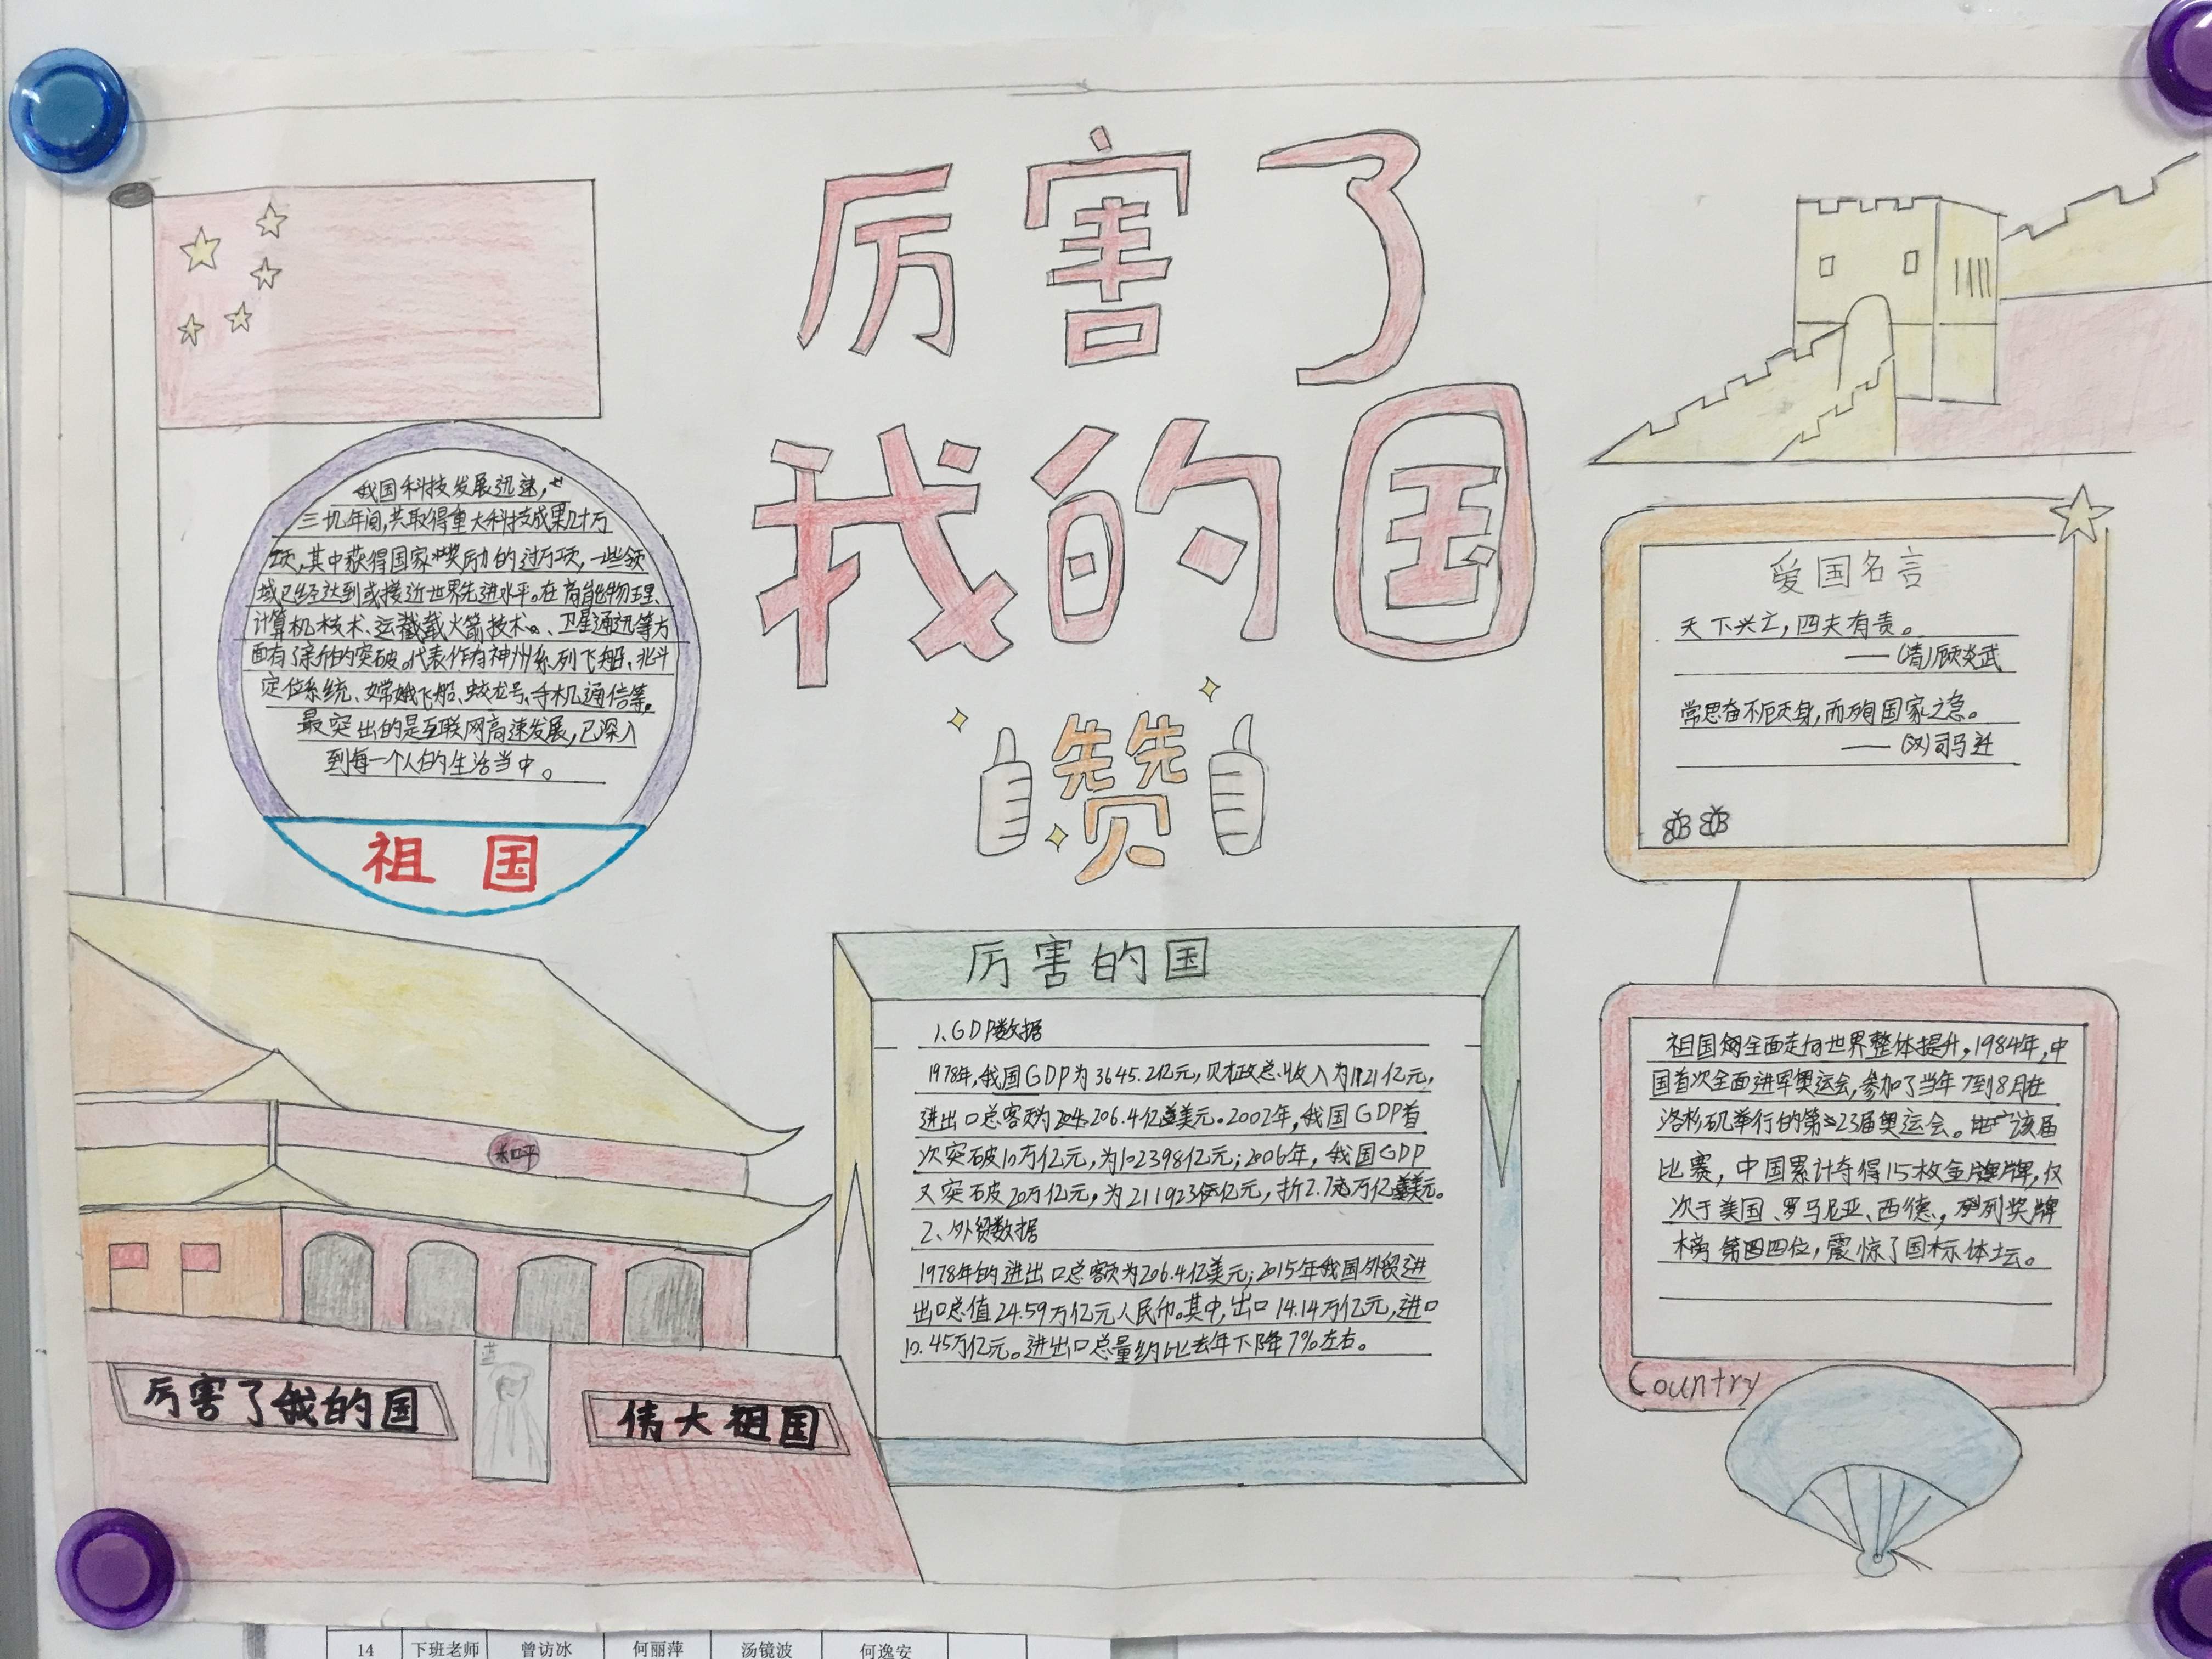 厉害了
我的国
赞
我国科技发展迅速，
三十几年间，共取得重大科技成果几十万
项，其中获得国家奖励的过万项，一些领
域已经达到或接近世界先进水平。在高能物理、
计算机技术、运载火箭技术、卫星通迅等方
面有了新的突破。代表作为神州系列飞船、北斗
定位系统、嫦娥飞船、蛟龙号、手机通信等。
最突出的是互联网高速发展，已深入
到每一个人的生活当中。
祖国
和平
厉害了我的国
伟大祖国
厉害的国
1、GDP数据
1978年，我国GDP为3645.2亿元，财政总收入为1121亿元，
进出口总额为206.4亿美元。2002年，我国GDP首
次突破10万亿元，为102398亿元；2006年，我国GDP
又突破20万亿元，为211923亿元，折2.7万亿美元。
2、外贸数据
1978年的进出口总额为206.4亿美元；2015年我国外贸进
出口总值24.59万亿元人民币。其中，出口14.14万亿元，进口
10.45万亿元。进出口总量约比去年下降7%左右。
爱国名言
天下兴亡，四夫有责。
——（清）顾炎武
常思奋不顾身，而殉国家之急。
——（汉）司马迁
祖国全面走向世界整体提升，1984年，中
国首次全面进军奥运会，参加了当年7到8月在
洛杉矶举行的第23届奥运会。该届
比赛，中国累计夺得15枚金牌，仅
次于美国、罗马尼亚、西德，列奖牌
榜第四位，震惊了国标体坛。
Country
14 下班老师 曾访冰 何丽萍 汤镜波 何逸安